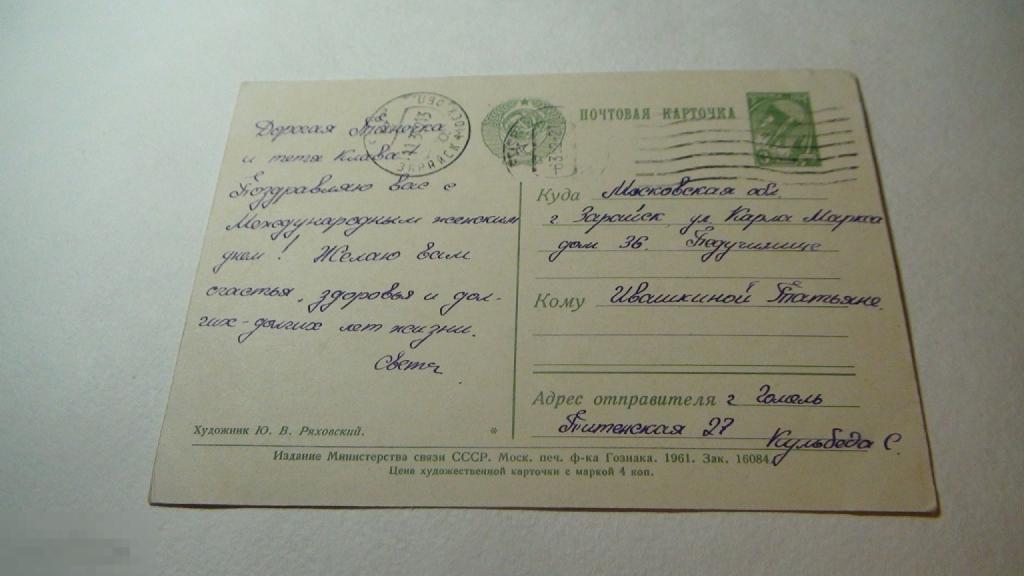 Дорогая Танечка
и тетя Клава
Поздравляю вас с
Международным женским
днем! Желаю вам
счастья, здоровья и дол-
гих-долгих лет жизни.
Света
Художник Ю. В. Ряховский. *
ПОЧТОВАЯ КАРТОЧКА
Куда Московская обл.
г. Зарайск ул Карла Маркса
дом 36. Педучилище
Кому Ивашкиной Татьяне.
Адрес отправителя г Гомель
27
Кульбеда С.
Издание Министерства связи СССР. Моск. печ. ф-ка Гознака. 1961. Зак. 16084.
Цена художественной карточки с маркой 4 коп.